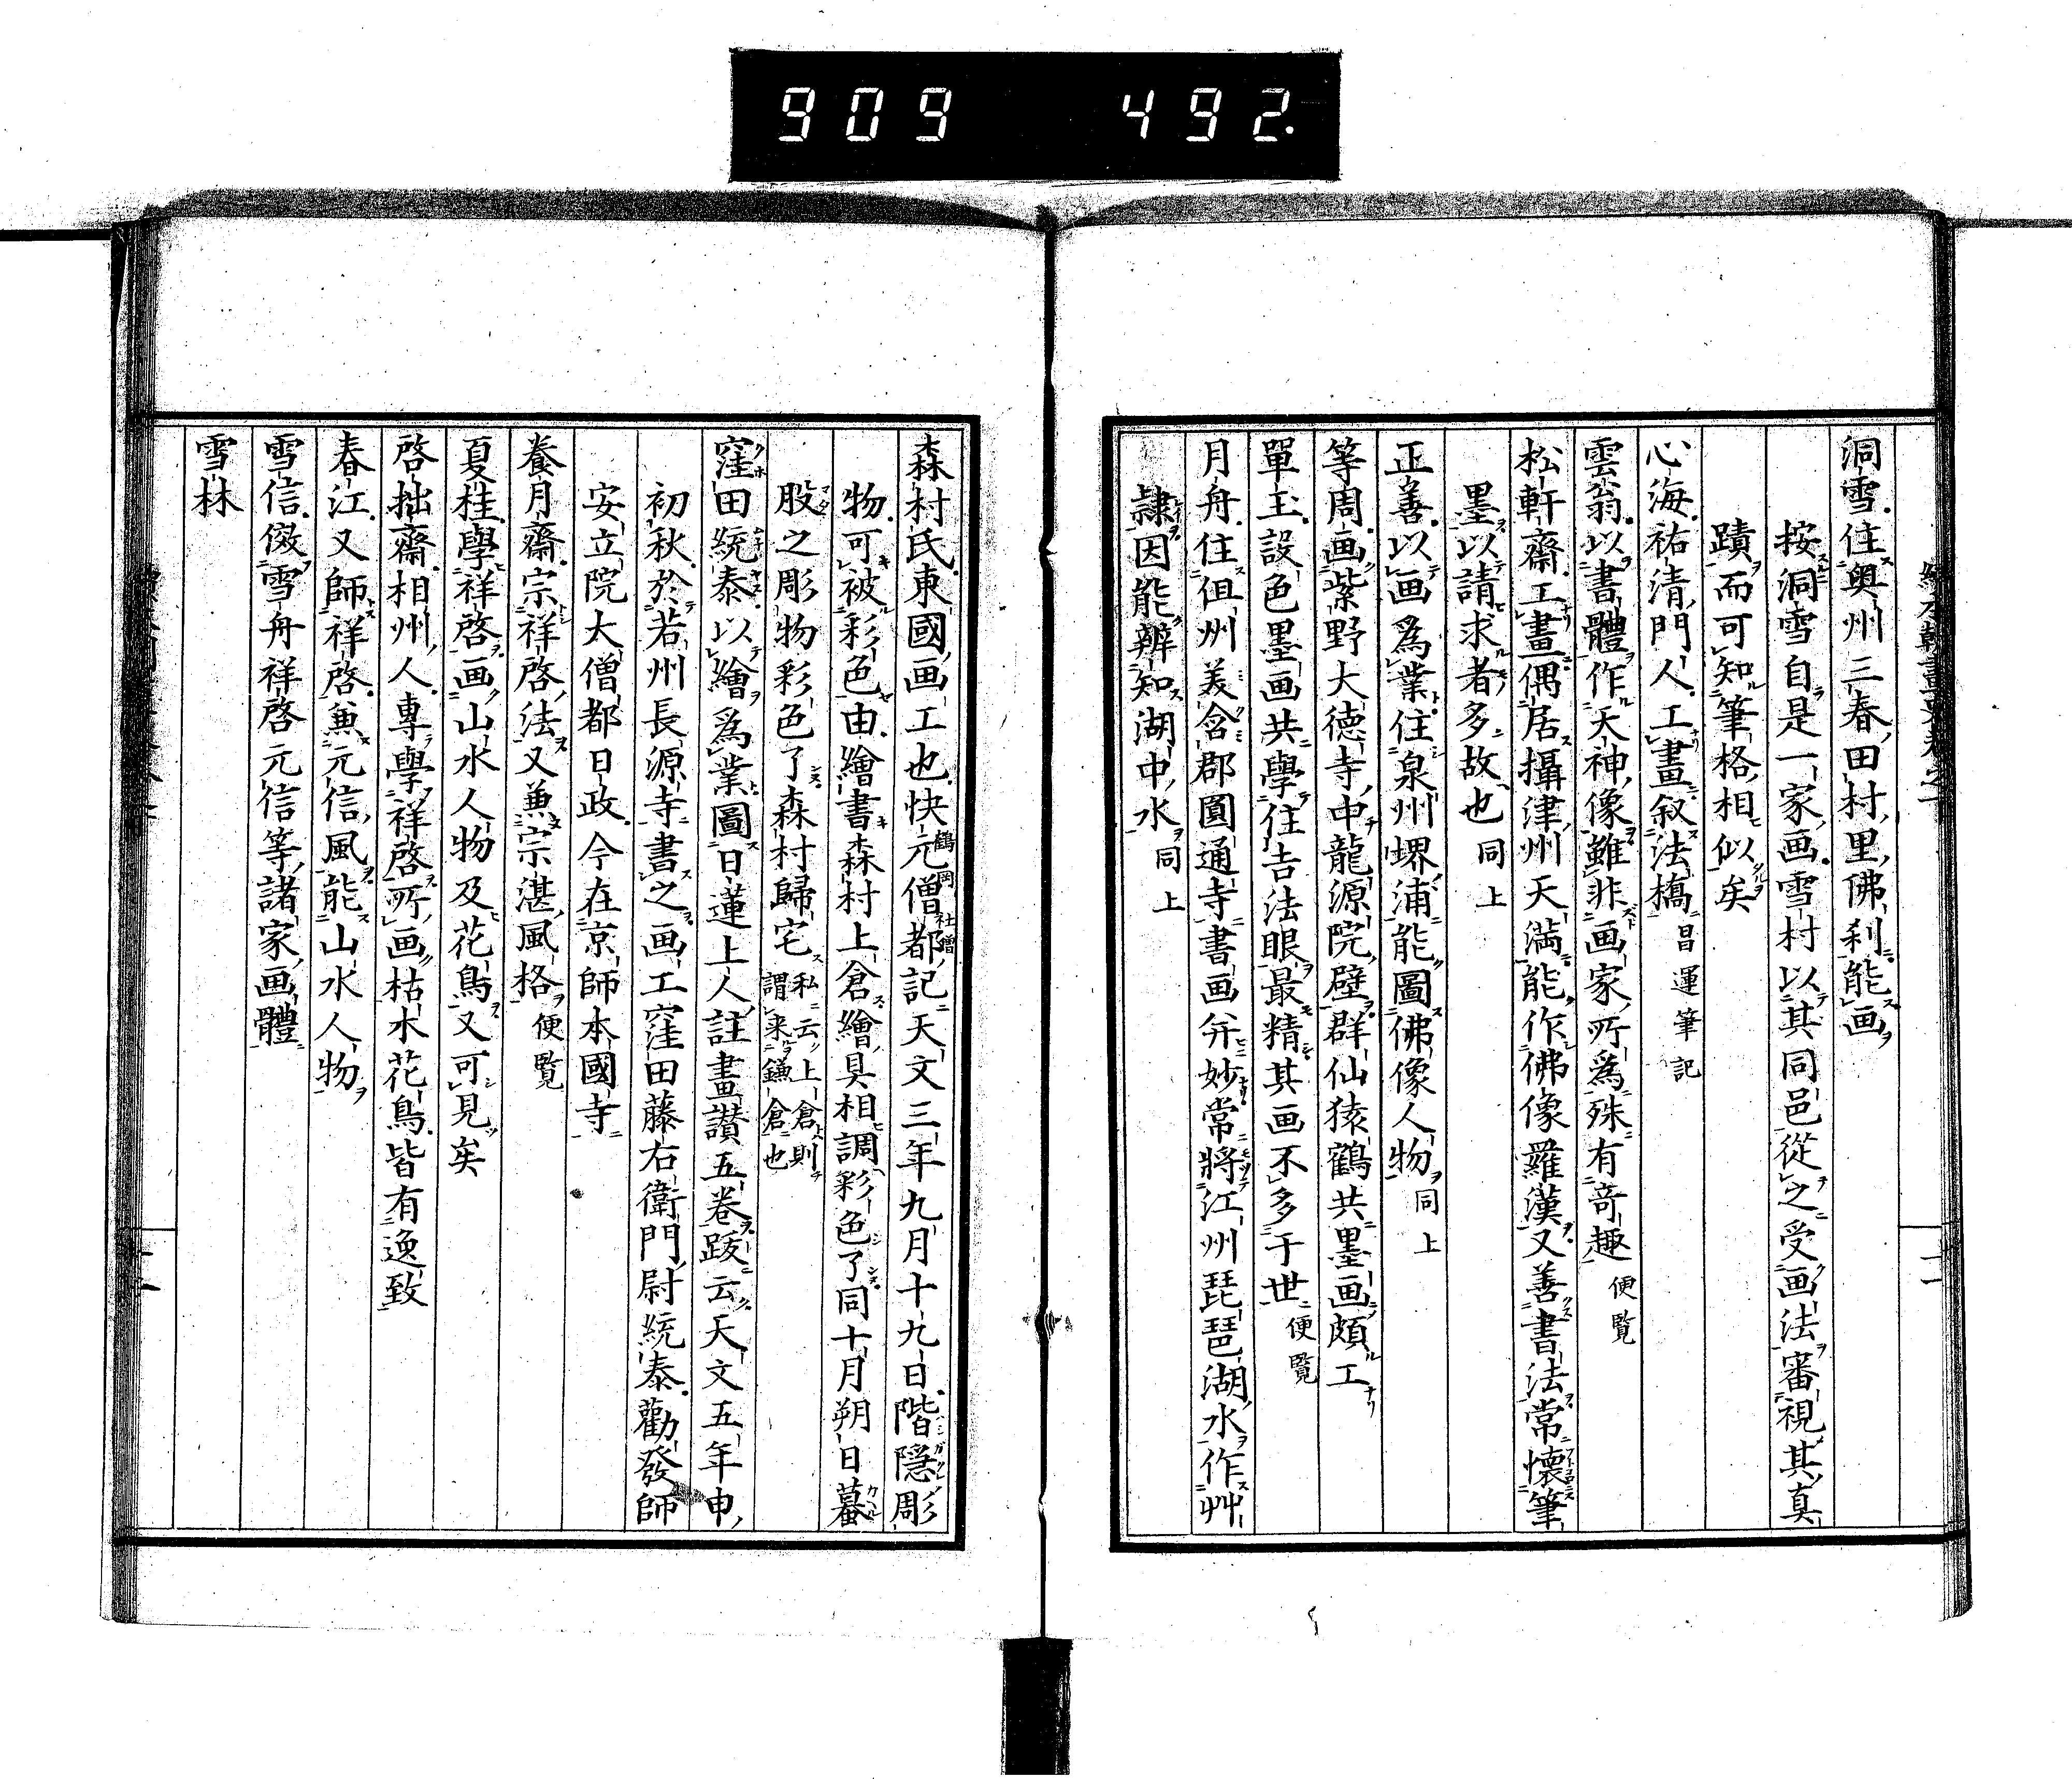 909 492.
洞雪住奥州三春田村里佛刹能画
按洞雪自是一家画雪村以其同邑從之受画法審視其真
蹟而可知筆格相似矣
心海祐清門人工畫叙法橋昌運筆記
雲翁以書體作天神像雖非画家所為殊有竒趣便覧
松軒齋工畫偶居攝津州天満能作佛像羅漢又善書法常懐筆
墨以請求者多故也同上
正善以画為業住泉州堺浦能圖佛像人物同上
等周画紫野大徳寺中龍源院壁群仙猿鶴共墨画頗工
單玉設色墨画共學住吉法眼最精其画不多于世便覧
月舟住伹州美含郡圓通寺書画并妙常將江州琵琶湖水作艸
隷因能辨知湖中水同上
森村氏東國画工也快元僧都鶴岡社僧記天文三年九月十九日階隠彫
物可被彩色由繪書森村上倉繪具相調彩色了同十月朔日蟇
股之彫物彩色了森村歸宅私云上倉則謂来鎌倉也
窪田統泰以繪為業圖日蓮上人註畫讃五巻跋云天文五年申
初秋於若州長源寺書之画工窪田藤右衛門尉統泰勸發師
安立院大僧都日政今在京師本國寺
養月齋宗祥啓法又兼宗湛風格便覧
夏桂學祥啓画山水人物及花鳥又可見矣
啓拙齋相州人專學祥啓所画枯木花鳥皆有逸致
春江又師祥啓兼元信風能山水人物
雪信倣雪舟祥啓元信等諸家画體
雪林